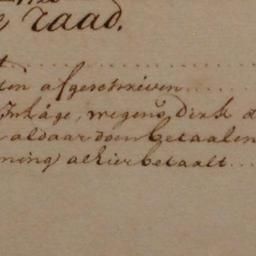 e raad.
ten afgeschreven
Inhage, wegens Dirk
aldaar doen betaalen
ning alhier betaalt